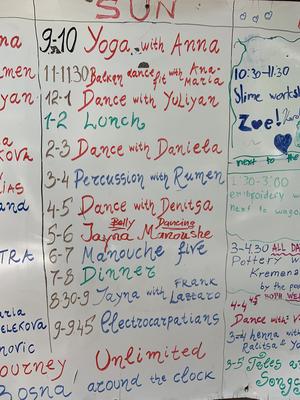 SUN
9-10 Yoga with Anna
11-1130 Balkan dance fit with Ana-maria
12-1 Dance with Yuliyan
1-2 Lunch
2-3 Dance with Daniela
3-4 Percussion with Rumen
4-5 Dance with Denitsa
5-6 Jayna Manoushe
Belly Dancing
6-7 Manouche five
7-8 Dinner
830-9 Jayna with FRANK LAZZARO
9-945 Electrocarpatians
Unlimited
around the clock
na
men
yan
KOVA
and
TRA
aria
ELEKOVA
novic
ourney
Bosna
10:30-11:30
Slime works
Zoe!
next to the
1:30-3:00
embroidery w
next to wago
3-4.30 ALL DA
Pottery w
Kremena
by the po
4-445
Dance with V
3-4 henna with
Ralitsa & Yo
3-5 Tales a
Songs